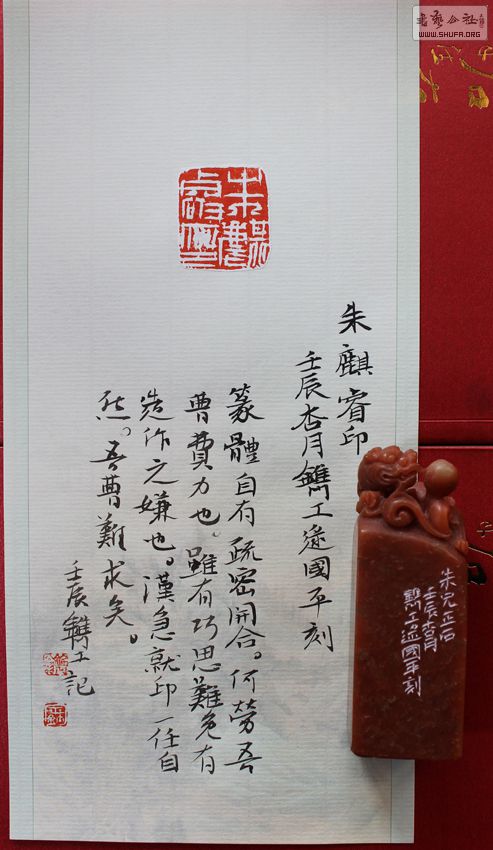 書藝公社
WWW.SHUFA.ORG
朱麒睿印
朱麒睿印
壬辰杏月鐫工逄國平刻
篆體自有疏密開合。何勞吾
曹費力也。雖有巧思難免有
造作之嫌也。漢急就印一任自
然。吾曹難求矣。
壬辰鐫工記
朱兄正石
壬辰杏月
鐫工逄國平刻